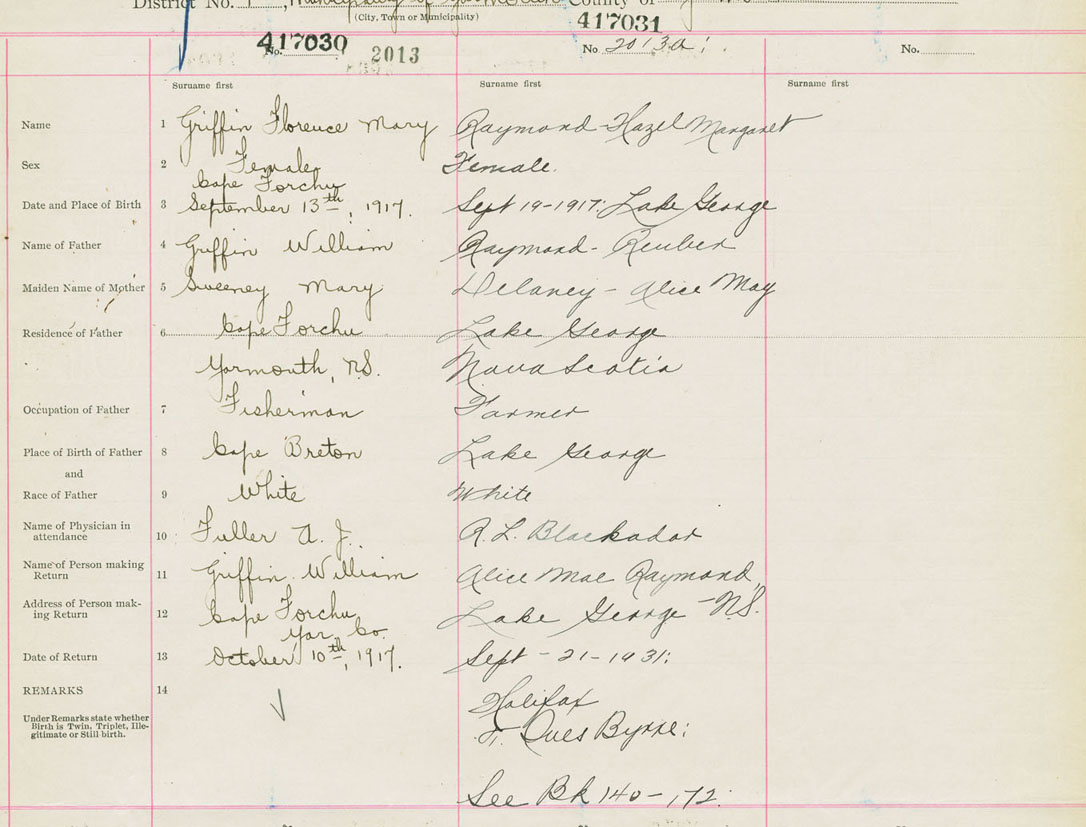 District No. 1, Municipality of Yarmouth County of
(City, Town or Municipality)
417030
417031
No. 2013
No 2013a;
No.
Surname first
Surname first
Surname first
Name 1 Griffin Florence Mary Raymond-Hazel Margaret
Sex 2 Female Female.
Cape Forchu
Date and Place of Birth 3 September 13th, 1917. Sept 19-1917; Lake George
Name of Father 4 Griffin William Raymond- Reuben
Maiden Name of Mother 5 Sweeney Mary Delaney - Alice May
Residence of Father 6 Cape Forchu Lake George
Yarmouth, N.S. Nova Scotia
Occupation of Father 7 Fisherman Farmer
Place of Birth of Father 8 Cape Breton Lake George
and
Race of Father 9 White White
Name of Physician in
attendance 10 Fuller A. J. R.L. Blackadar
Name of Person making
Return 11 Griffin William Alice Mae Raymond,
Address of Person mak-
ing Return 12 Cape Forchu Lake George - N.S.
Yar. Co.
Date of Return 13 October 10th, 1917. Sept - 21-1931:
REMARKS 14 Halifax
Under Remarks state whether
Birth is Twin, Triplet, Ille-
gitimate or Still birth.
Byrne;
See Bk 140-172.